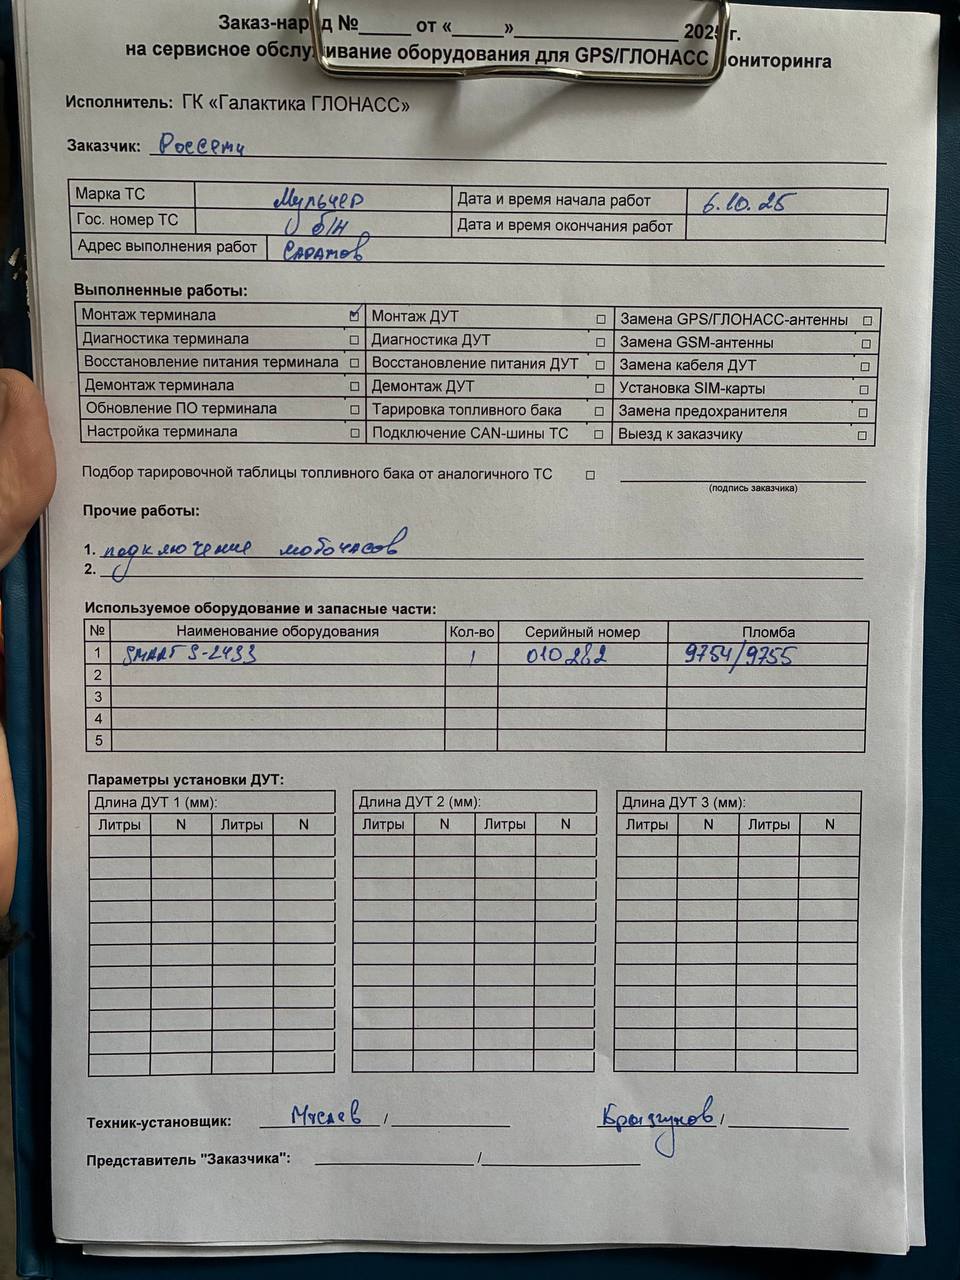 Заказ-наряд №_____ от «_____»________________ 2025 г.
на сервисное обслуживание оборудования для GPS/ГЛОНАСС мониторинга
Исполнитель: ГК «Галактика ГЛОНАСС»
Заказчик: Россети
Марка ТС Мульчер Дата и время начала работ 6.10.25
Гос. номер ТС б/н Дата и время окончания работ
Адрес выполнения работ Саратов
Выполненные работы:
Монтаж терминала ☑ Монтаж ДУТ ☐ Замена GPS/ГЛОНАСС-антенны ☐
Диагностика терминала ☐ Диагностика ДУТ ☐ Замена GSM-антенны ☐
Восстановление питания терминала ☐ Восстановление питания ДУТ ☐ Замена кабеля ДУТ ☐
Демонтаж терминала ☐ Демонтаж ДУТ ☐ Установка SIM-карты ☐
Обновление ПО терминала ☐ Тарировка топливного бака ☐ Замена предохранителя ☐
Настройка терминала ☐ Подключение CAN-шины ТС ☐ Выезд к заказчику ☐
Подбор тарировочной таблицы топливного бака от аналогичного ТС ☐
(подпись заказчика)
Прочие работы:
1. подключение моточасов
2.
Используемое оборудование и запасные части:
№ Наименование оборудования Кол-во Серийный номер Пломба
1 SMART S-2433 1 010282 9754/9755
2
3
4
5
Параметры установки ДУТ:
Длина ДУТ 1 (мм): Длина ДУТ 2 (мм): Длина ДУТ 3 (мм):
Литры N Литры N Литры N Литры N Литры N Литры N
Техник-установщик: / /
Представитель "Заказчика": /